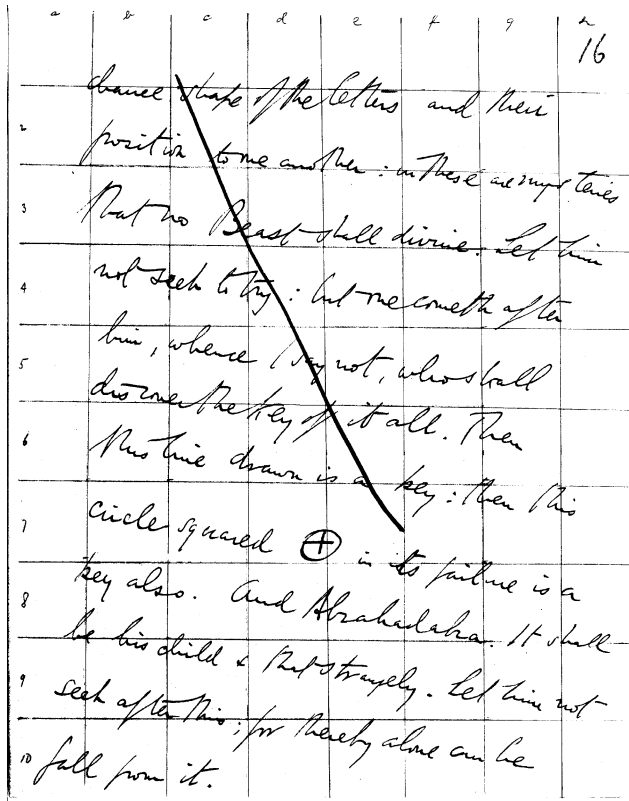 a b c d e f g h
16
chance shape of the letters and their
2 position to one another: in these are mysteries
3 that no Beast shall divine. Let him
4 not seek to try: but one cometh after
him, whence I say not, who shall
5 discover the Key of it all. Then
6 this line drawn is a key: then this
7 circle squared ⊕ in its failure is a
key also. And Abrahadabra. It shall
8 be his child & that strangely. Let him not
9 seek after this; for thereby alone can he
10 fall from it.